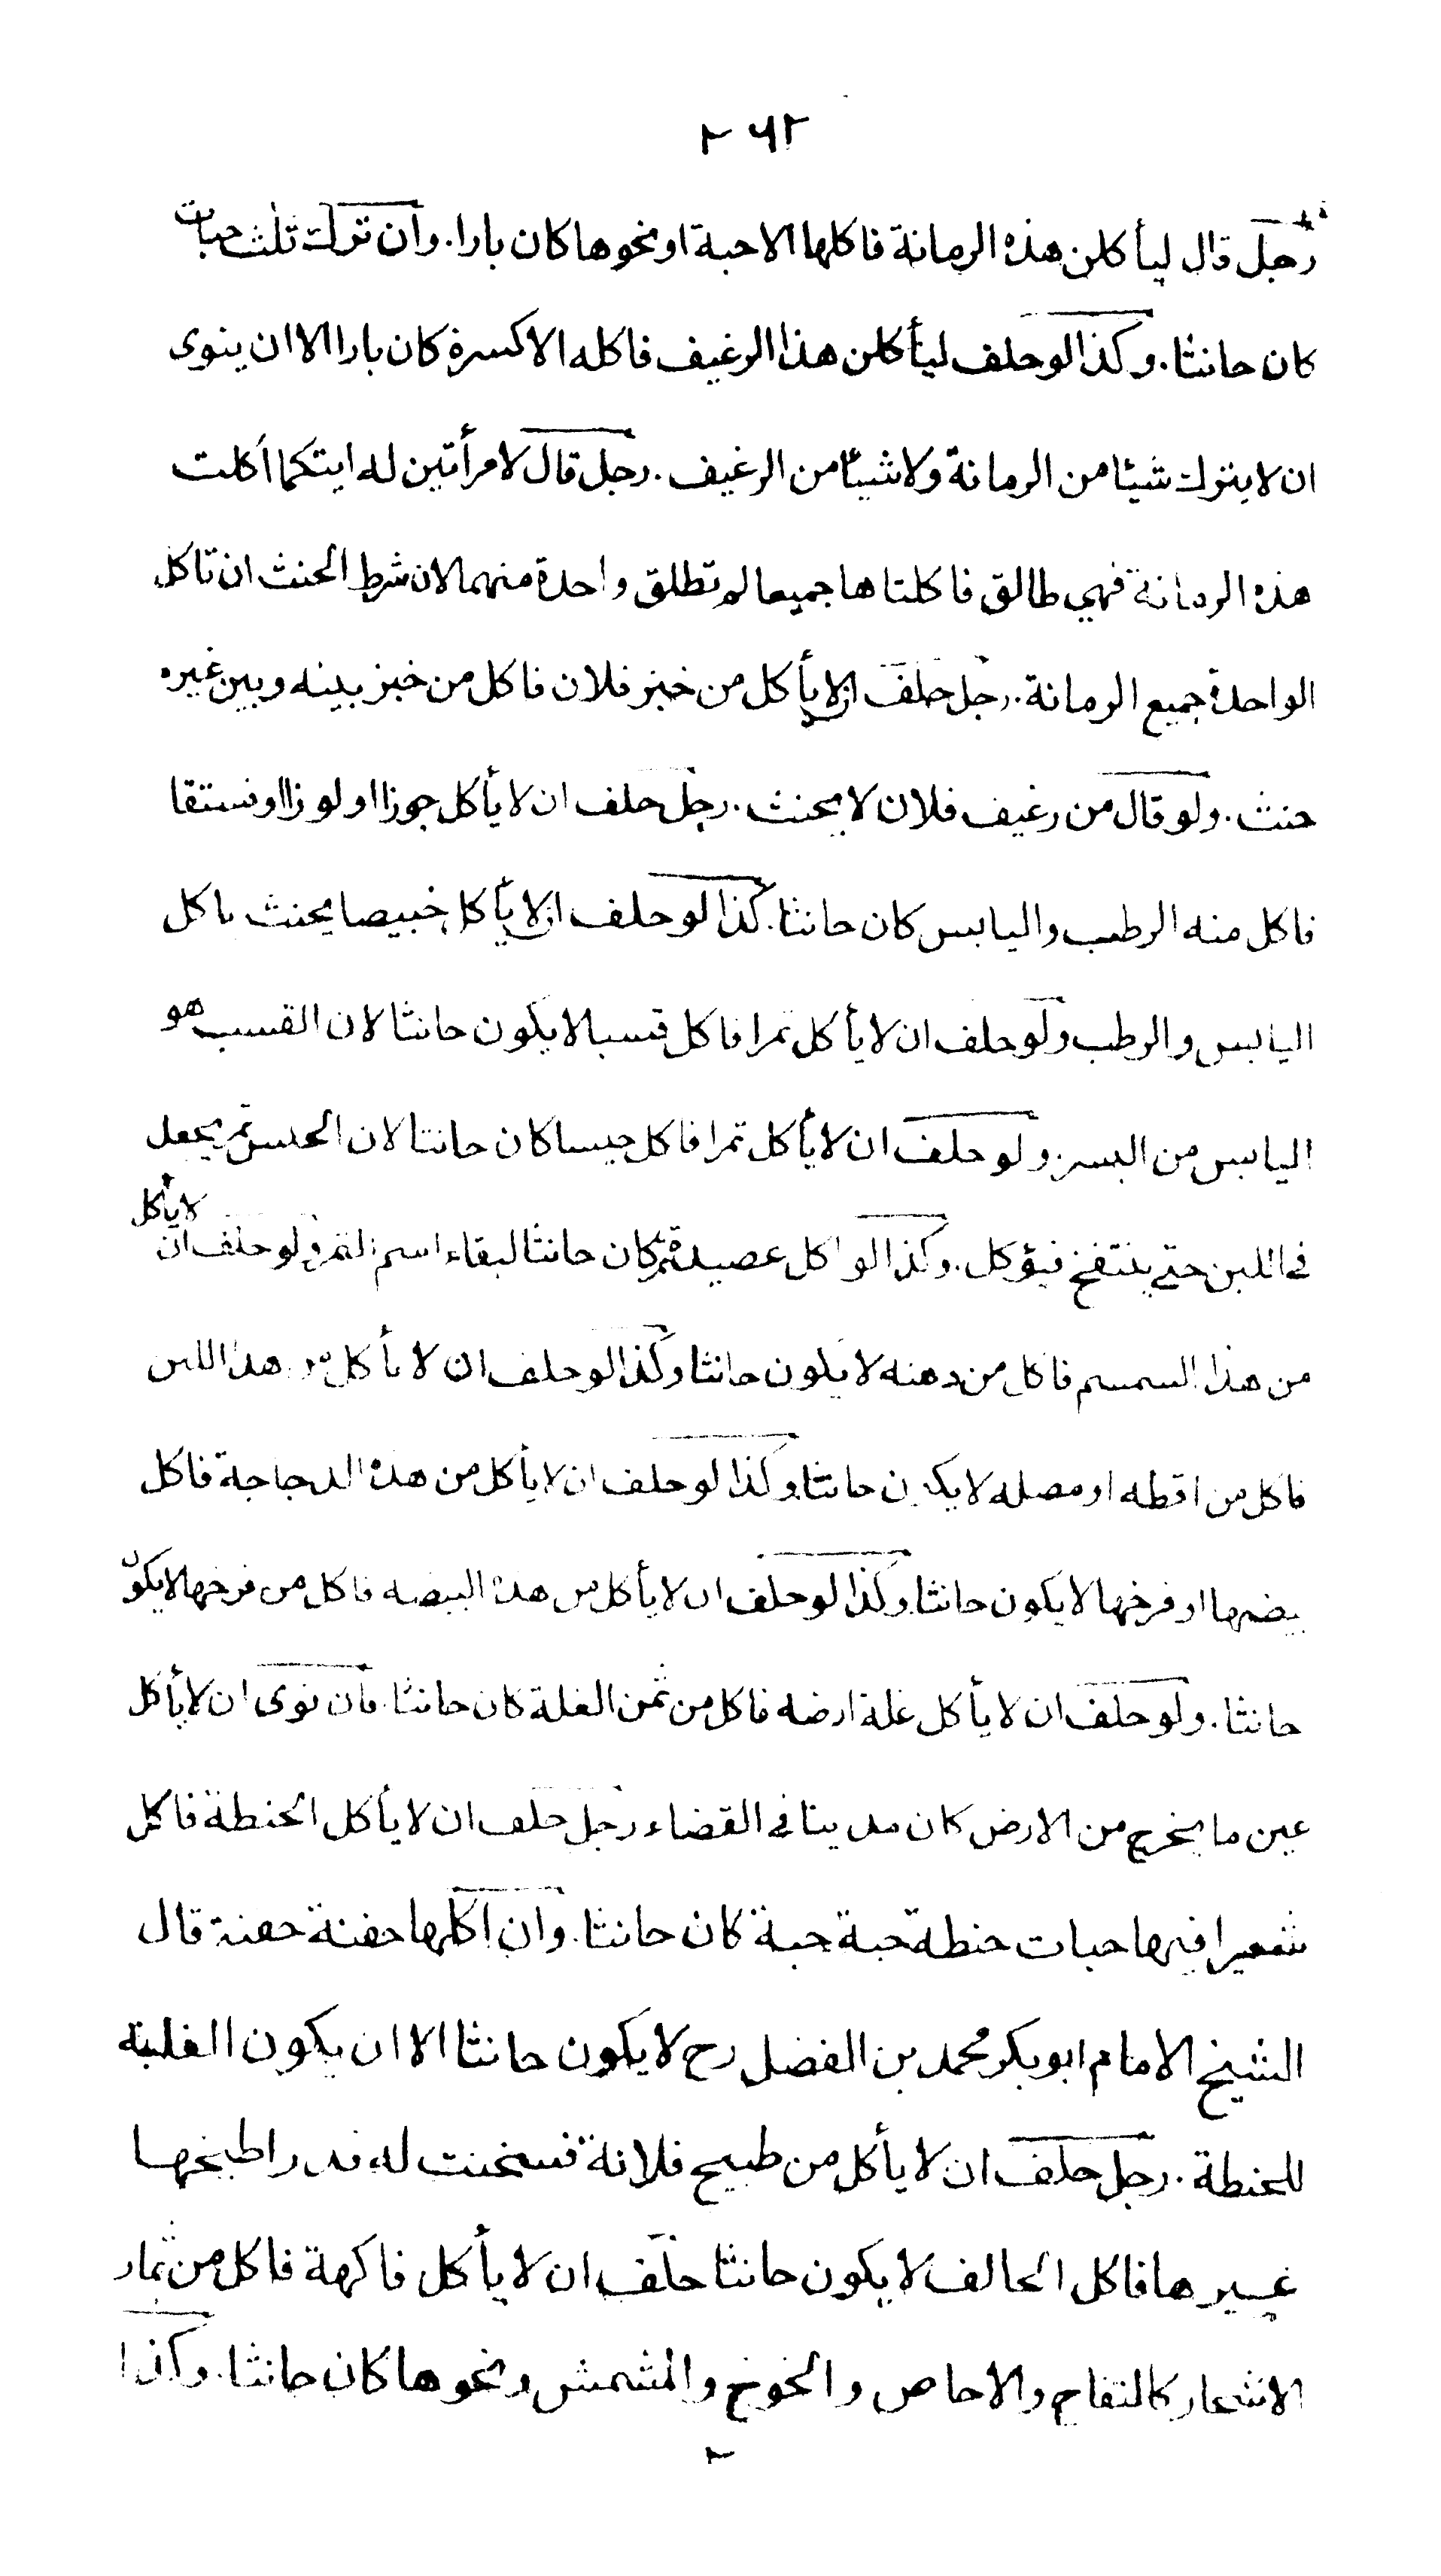 ٢٦٢
رجل قال ليأكلن هذه الرمانة فاكلها الاحبة او نحوها كان بارا. وان ترك ثلث حبات
كان حانثا. وكذا لو حلف ليأكلن هذا الرغيف فاكله الا كسرة كان بارا الا ان ينوى
ان لا يترك شيئا من الرمانة ولا شيئا من الرغيف. رجل قال لامرأتين له ايتكما اكلت
هذه الرمانة فهي طالق فاكلتاها جميعا لم تطلق واحدة منهما لان شرط الحنث ان تاكل
الواحدة جميع الرمانة. رجل حلف ان لا يأكل من خبز فلان فاكل من خبز بينه وبين غيره
حنث. ولو قال من رغيف فلان لا يحنث. رجل حلف ان لا يأكل جوزا او لوزا او فستقا
فاكل منه الرطب واليابس كان حانثا. كذا لو حلف ان لا يأكل خبيصا يحنث باكل
اليابس والرطب ولو حلف ان لا يأكل تمرا فاكل قسبا لا يكون حانثا لان القسب هو
اليابس من البسر. ولو حلف ان لا يأكل تمرا فاكل حيسا كان حانثا لان الحيس تمر يجعل
في اللبن حتى ينتفخ فيؤكل. وكذا لو اكل عصيدة تمر كان حانثا لبقاء اسم التمر ولو حلف ان لا يأكل
من هذا السمسم فاكل من دهنه لا يكون حانثا وكذا لو حلف ان لا يأكل من هذا اللبن
فاكل من اقطه او مصله لا يكون حانثا. وكذا لو حلف ان لا يأكل من هذه الدجاجة فاكل
بيضها او فرخها لا يكون حانثا. وكذا لو حلف ان لا يأكل من هذه البيضه فاكل من فرخها لا يكون
حانثا. ولو حلف ان لا يأكل غلة ارضه فاكل من ثمن الغلة كان حانثا. فان نوى ان لا يأكل
عين ما يخرج من الارض كان مدينا في القضاء رجل حلف ان لا يأكل الحنطة فاكل
شعيرا فيها حبات حنطة حبة حبة كان حانثا. وان اكلها حفنة حفنة قال
الشيخ الامام ابو بكر محمد بن الفضل رح لا يكون حانثا الا ان يكون الغلبة
للحنطة. رجل حلف ان لا يأكل من طبيخ فلانة فسخنت له قدرا طبخها
غيرها فاكل الحالف لا يكون حانثا حلف ان لا يأكل فاكهة فاكل من ثمار
الاشجار كالتفاح والاجاص والخوخ والمشمش ونحوها كان حانثا. وكذا
٢